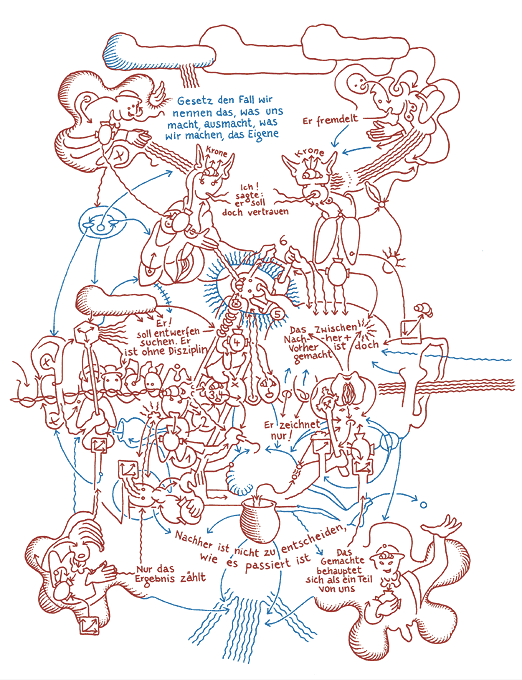 Gesetz den Fall wir
nennen das, was uns
macht, ausmacht, was
wir machen, das Eigene
Er fremdelt
Krone
Krone
Ich!
sagte:
er soll
doch vertrauen
6
5
4
Er!
soll entwerfen
suchen. Er
ist ohne Disziplin
Das Zwischen
Nach- -her+
Vorher ist doch
gemacht
Er zeichnet
nur!
Nachher ist nicht zu entscheiden,
wie es passiert ist
Nur das
Ergebnis zählt
Das
Gemachte
behauptet
sich als ein Teil
von uns